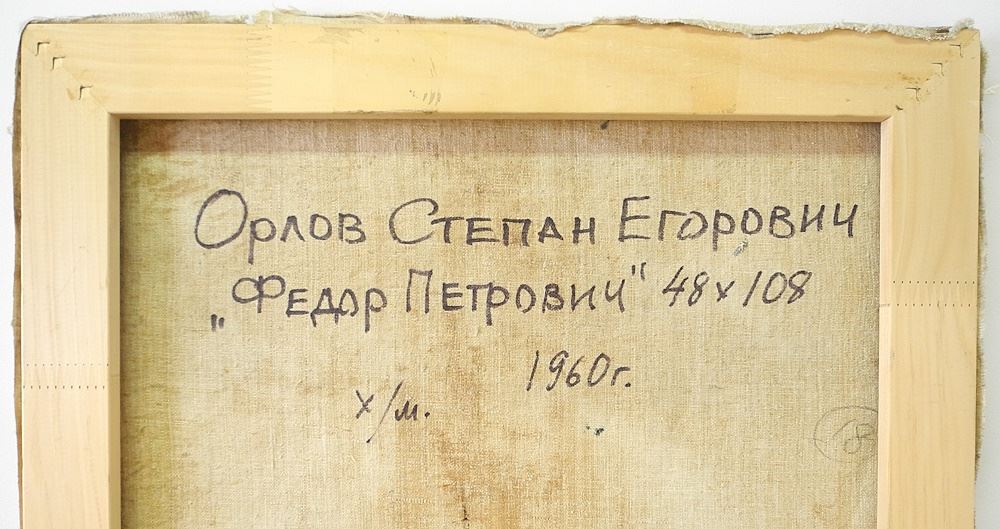 Орлов Степан Егорович
„Федор Петрович" 48x108
1960г.
х/м.